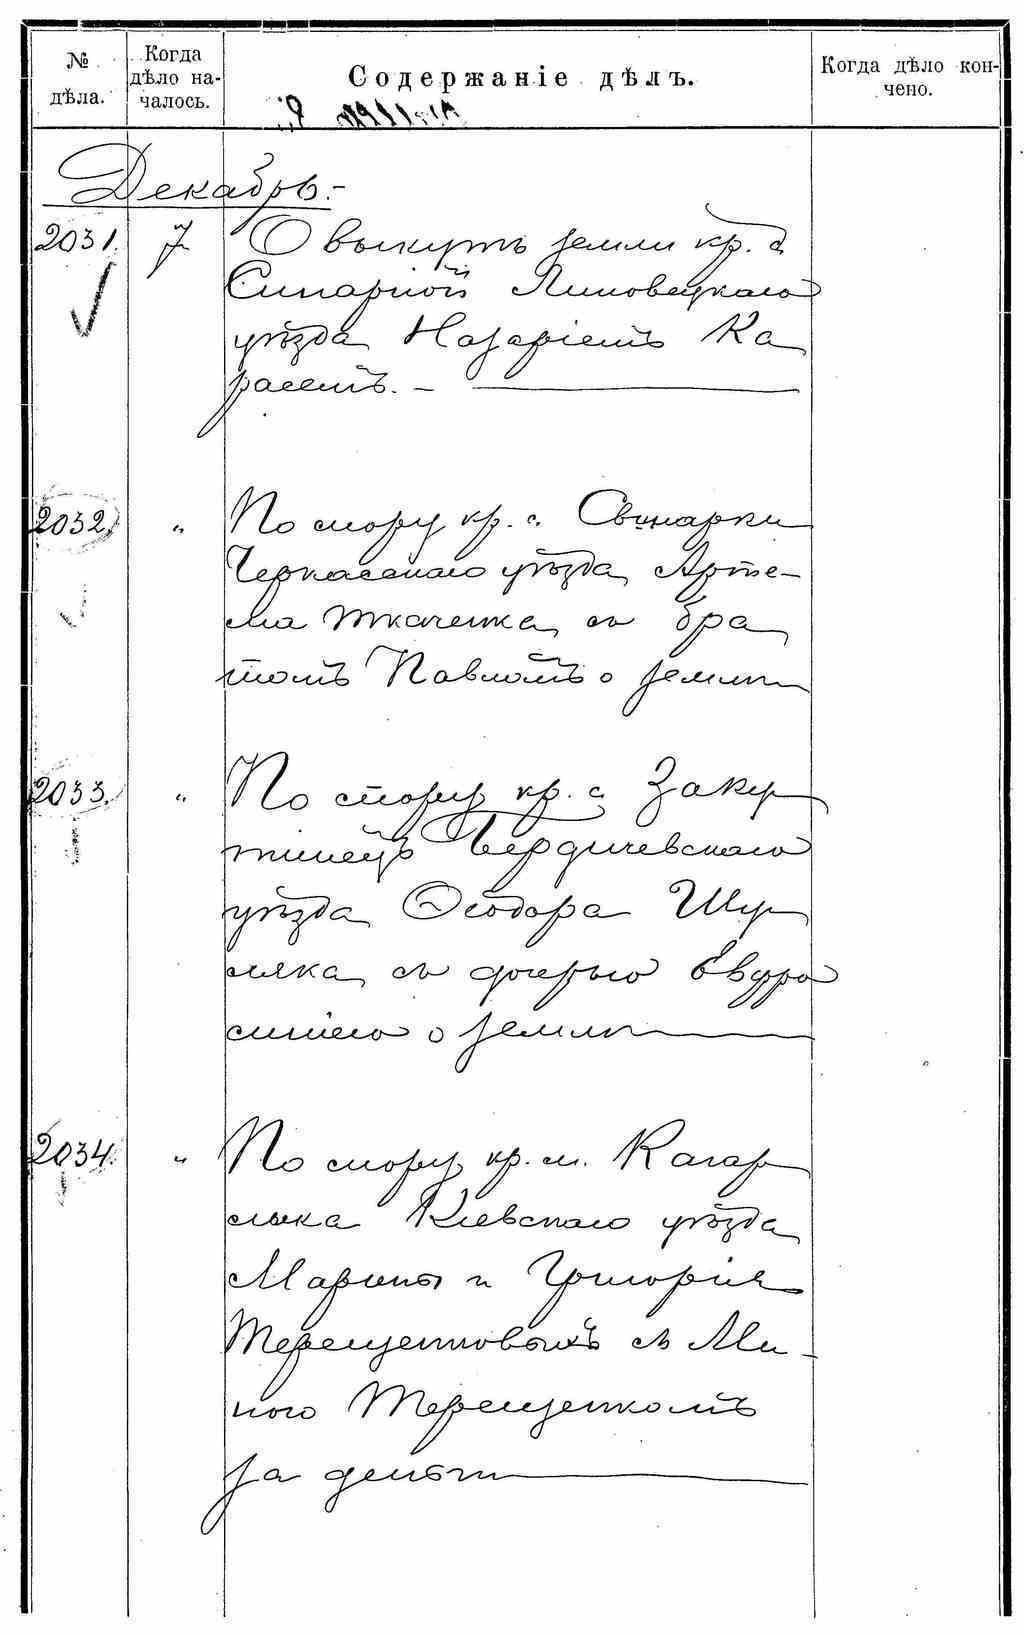 № дѣла.
Когда дѣло началось.
Содержаніе дѣлъ.
Когда дѣло кончено.
Декабрь.-
2031. 7 О выкупѣ земли кр. с.
Липовецкаго
уѣзда Назаріемъ Ка
расемъ. -
2032. " По спору кр. с. Свинарки
Черкасскаго уѣзда Арте-
ма Ткаченка съ бра
томъ Павломъ о землѣ
2033. " По спору кр. с. Заку
тинецъ Бердичевскаго
уѣзда Ѳеодора Шу
ляка съ дочерью Евфро
синіею о землѣ
2034. " По спору кр. м. Кагар
лыка Кіевскаго уѣзда
Марины и Григорія
Терещенковыхъ съ Ми-
ною Терещенкомъ
за деньги